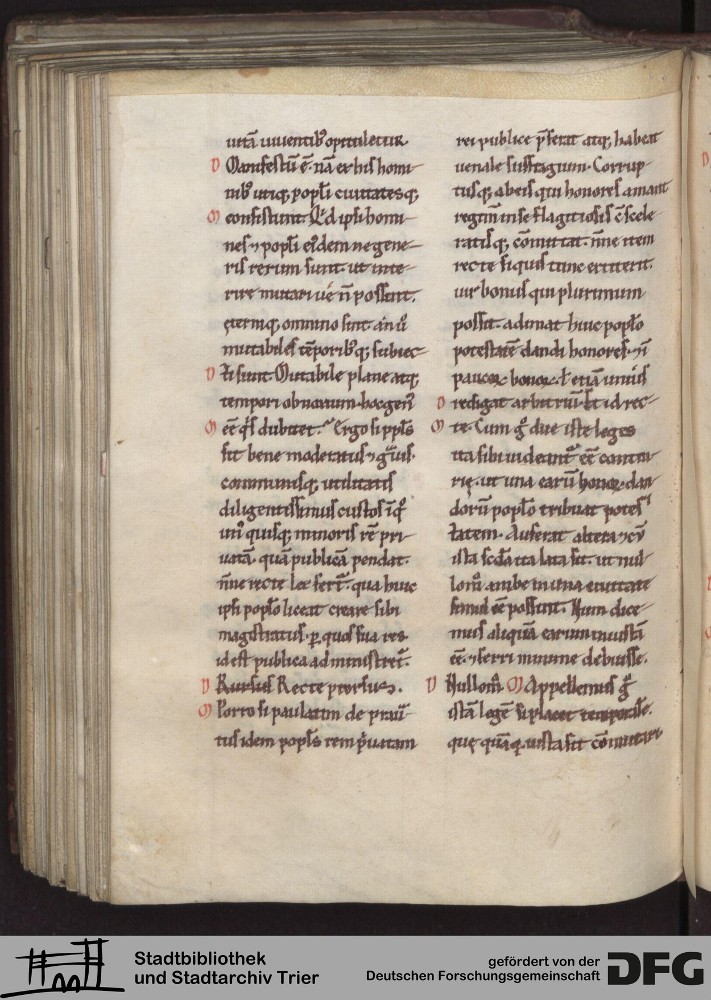 uitā uiuentib⁹ opitułetur.
D Manifestū ē. nā ex his homi-
nib⁹ utiq; popłi ciuitatesq;
M consistunt. Qd ipsi homi-
nes ⁊ popłi eidem ne gene-
ris rerum sunt. ut inte-
rire mutari ue n̄ possint.
ęterniq; omnino sint an ū
mutabiles tēporib⁹q; subiec-
D ti sunt. Mutabile plane atq;
tempori obnoxium hoc gen⁹
M eē qs dubitet. Ergo si ppłs
sit bene moderatus ⁊ gᵃuis.
communisq; utilitatis
diligentissimus custos
un⁹ quisq; minoris rē pri-
uatā. quā publicā pendat.
nne recte lex fert. qua huic
ipsi popło liceat creare sibi
magistratus. ꝑ quos sua res
id est publica administret.
D Rursus Recte prorsus.
M Porro si paulatim de praū-
tus idem popłs rem p̄uatam
rei publice p̄ferat atq; habeat
uenale suffragium. Corrup-
tusq; ab eis qui honores amant
regim̄ in se flagitiosis c̄scele-
ratisq; cōmittat. nne item
recte si quis tunc extiterit.
uir bonus qui plurimum
possit. adimat huic popło
potestatē dandi honores. ⁊ ī
paucoꝝ bonoꝝ. ł etiā unius
D redigat arbitriū. Et id rec-
M te. Cum g̊ due iste leges
ita sibi uideant̃ eē contra-
rię. ut una earū honoꝝ dan-
dorū popło tribuat potes
tatem. Auferat altera ⁊ cū
ista scda ita lata sit. ut nul-
lom̊ ambe in una ciuitate
simul eē possint. Num dice-
mus aliquā earum iniustā
eē. ⁊ ferri minime debuisse.
D Nullom̊. M Appellemus g̊
istā legē si placet temporale.
quę quāq; iusta sit cōmutari
Stadtbibliothek
und Stadtarchiv Trier
gefördert von der
Deutschen Forschungsgemeinschaft
DFG